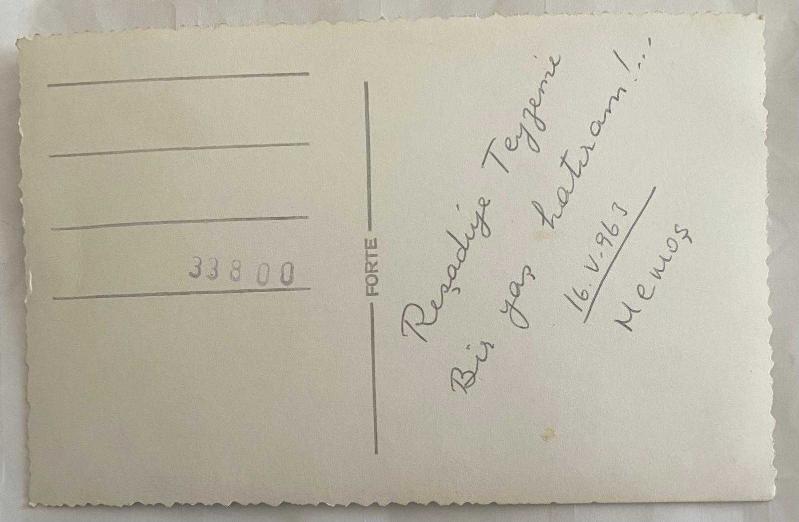 33800
FORTE
Reşadiye Teyzeme
Bir yaş hatıram!...
16.V.963
Memoş